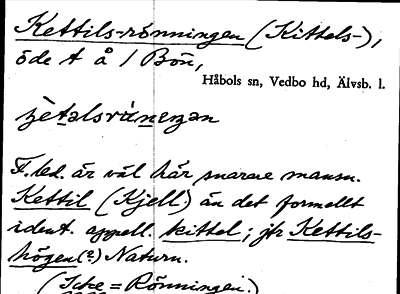 Kettils-rönningen (Kittels-),
öde t å 1 Bön,
Håbols sn, Vedbo hd, Älvsb. l.
F.led. är väl här snarare mansn.
Kettil (Kjell) än det formellt
ident. appell. kittel; jfr Kettils-
högen (2) Naturn.
(Icke = Rönningen.)